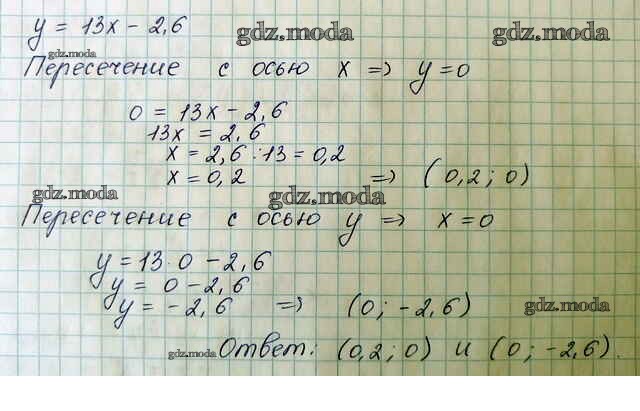 y = 13x - 2,6
gdz.moda gdz.moda
gdz.moda
Пересечение с осью x => y=0
0 = 13x - 2,6
13x = 2,6
x = 2,6 : 13 = 0,2
x = 0,2 => (0,2 ; 0)
gdz.moda gdz.moda
Пересечение с осью y => x = 0
y = 13 · 0 - 2,6
y = 0 - 2,6
y = - 2,6 => (0 ; -2,6)
gdz.moda
gdz.moda Ответ: (0,2 ; 0) и (0 ; -2,6).